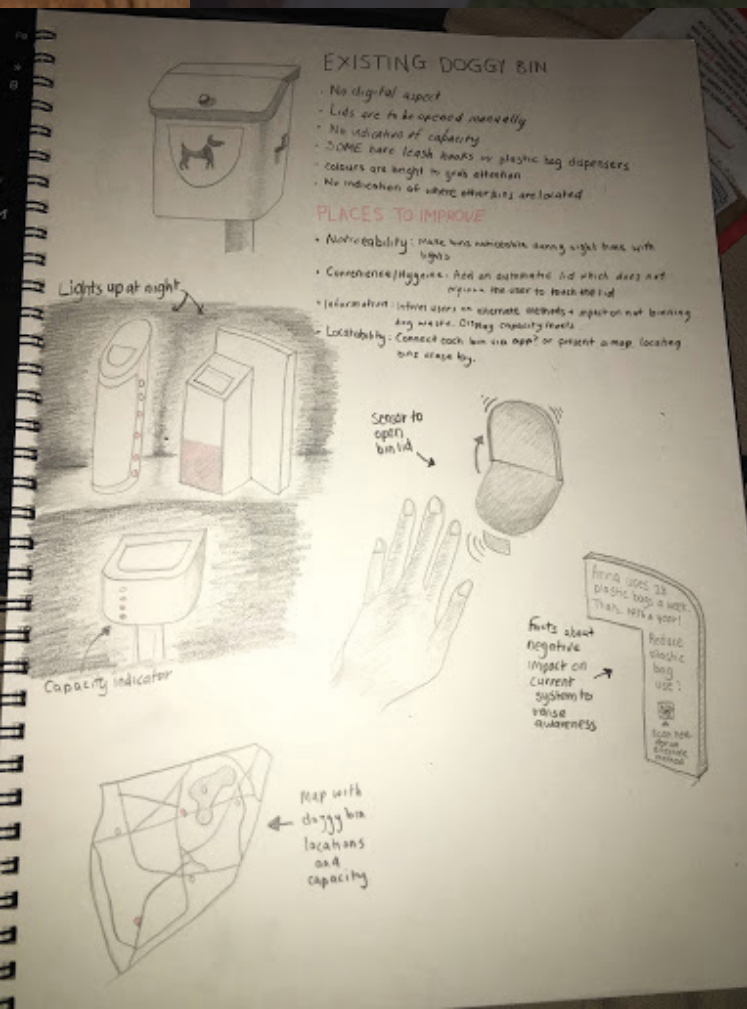 EXISTING DOGGY BIN
• No digital aspect
• Lids are to be opened manually
• No indication of capacity
• SOME have leash hooks or plastic bag dispensers
• colours are bright to grab attention
• No indication of where other bins are located
PLACES TO IMPROVE
• Noticeability: Make bins noticeable during night time with
lights
• Convenience/Hygiene: Add an automatic lid which does not
require the user to touch the lid
• Information: Informs users on alternate methods + impact on not binning
dog waste. Display capacity levels
• Locatability: Connect each bin via app? or present a map, locating
bins close by.
Lights up at night
Sensor to
open
bin lid
Capacity indicator
Facts about
negative
impact on
current
system to
raise
awareness
uses 28
plastic bags a week.
Thats a year!
Reduce
plastic
bag
use?
Scan here
for an
alternate
method
Map with
doggy bin
locations
and
capacity